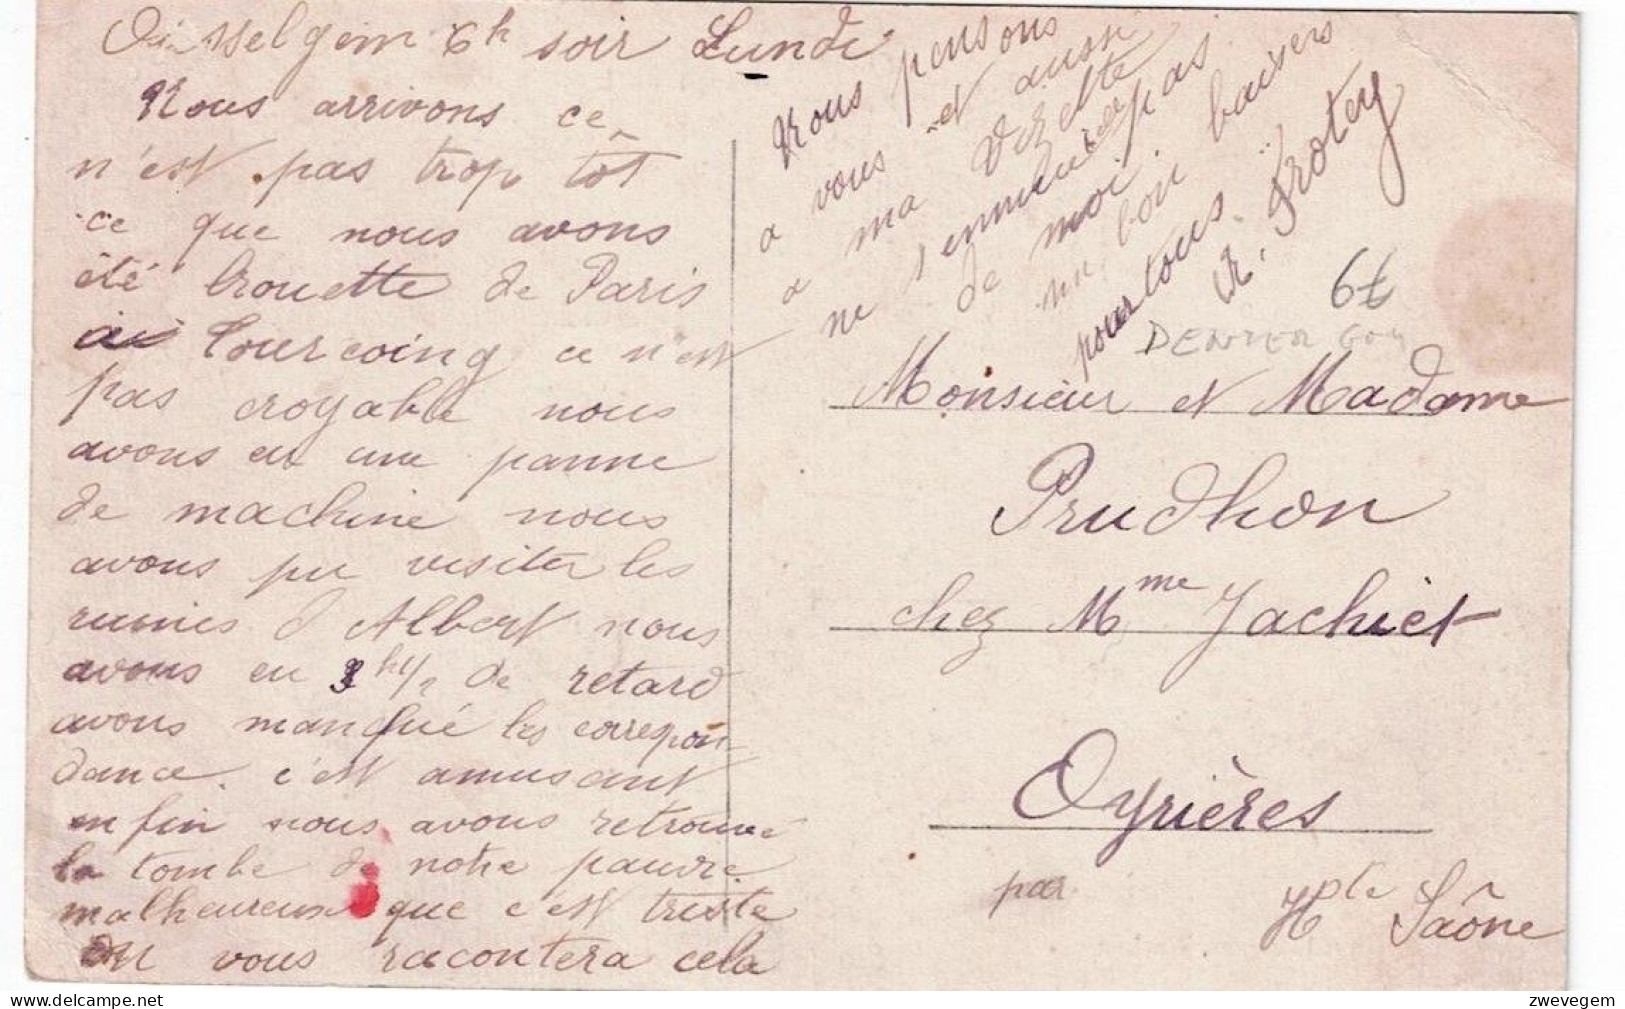 Oisselgem 6h soir Lundi
Nous arrivons ce
n'est pas trop tôt
ce que nous avons
été brouette de Paris
à Tourcoing ce n'est
pas croyable nous
avons eu une panne
de machine nous
avons pu visiter les
ruines d'Albert nous
avons eu 3h 1/2 de retard
avons manqué les correspon-
dance. c'est amusant
enfin nous avons retrouvé
la tombe de notre pauvre
malheureux que c'est triste
on vous racontera cela
Nous pensons
a vous et aussi
a ma Vozette
ne s'ennuie pas
de moi
un bon baisers
pour tous.
R. Frotey
6t
DENTER
Monsieur et Madame
Prudhon
chez Mme Jachiet
Oyrières
par
Hte Saône
zwevegem